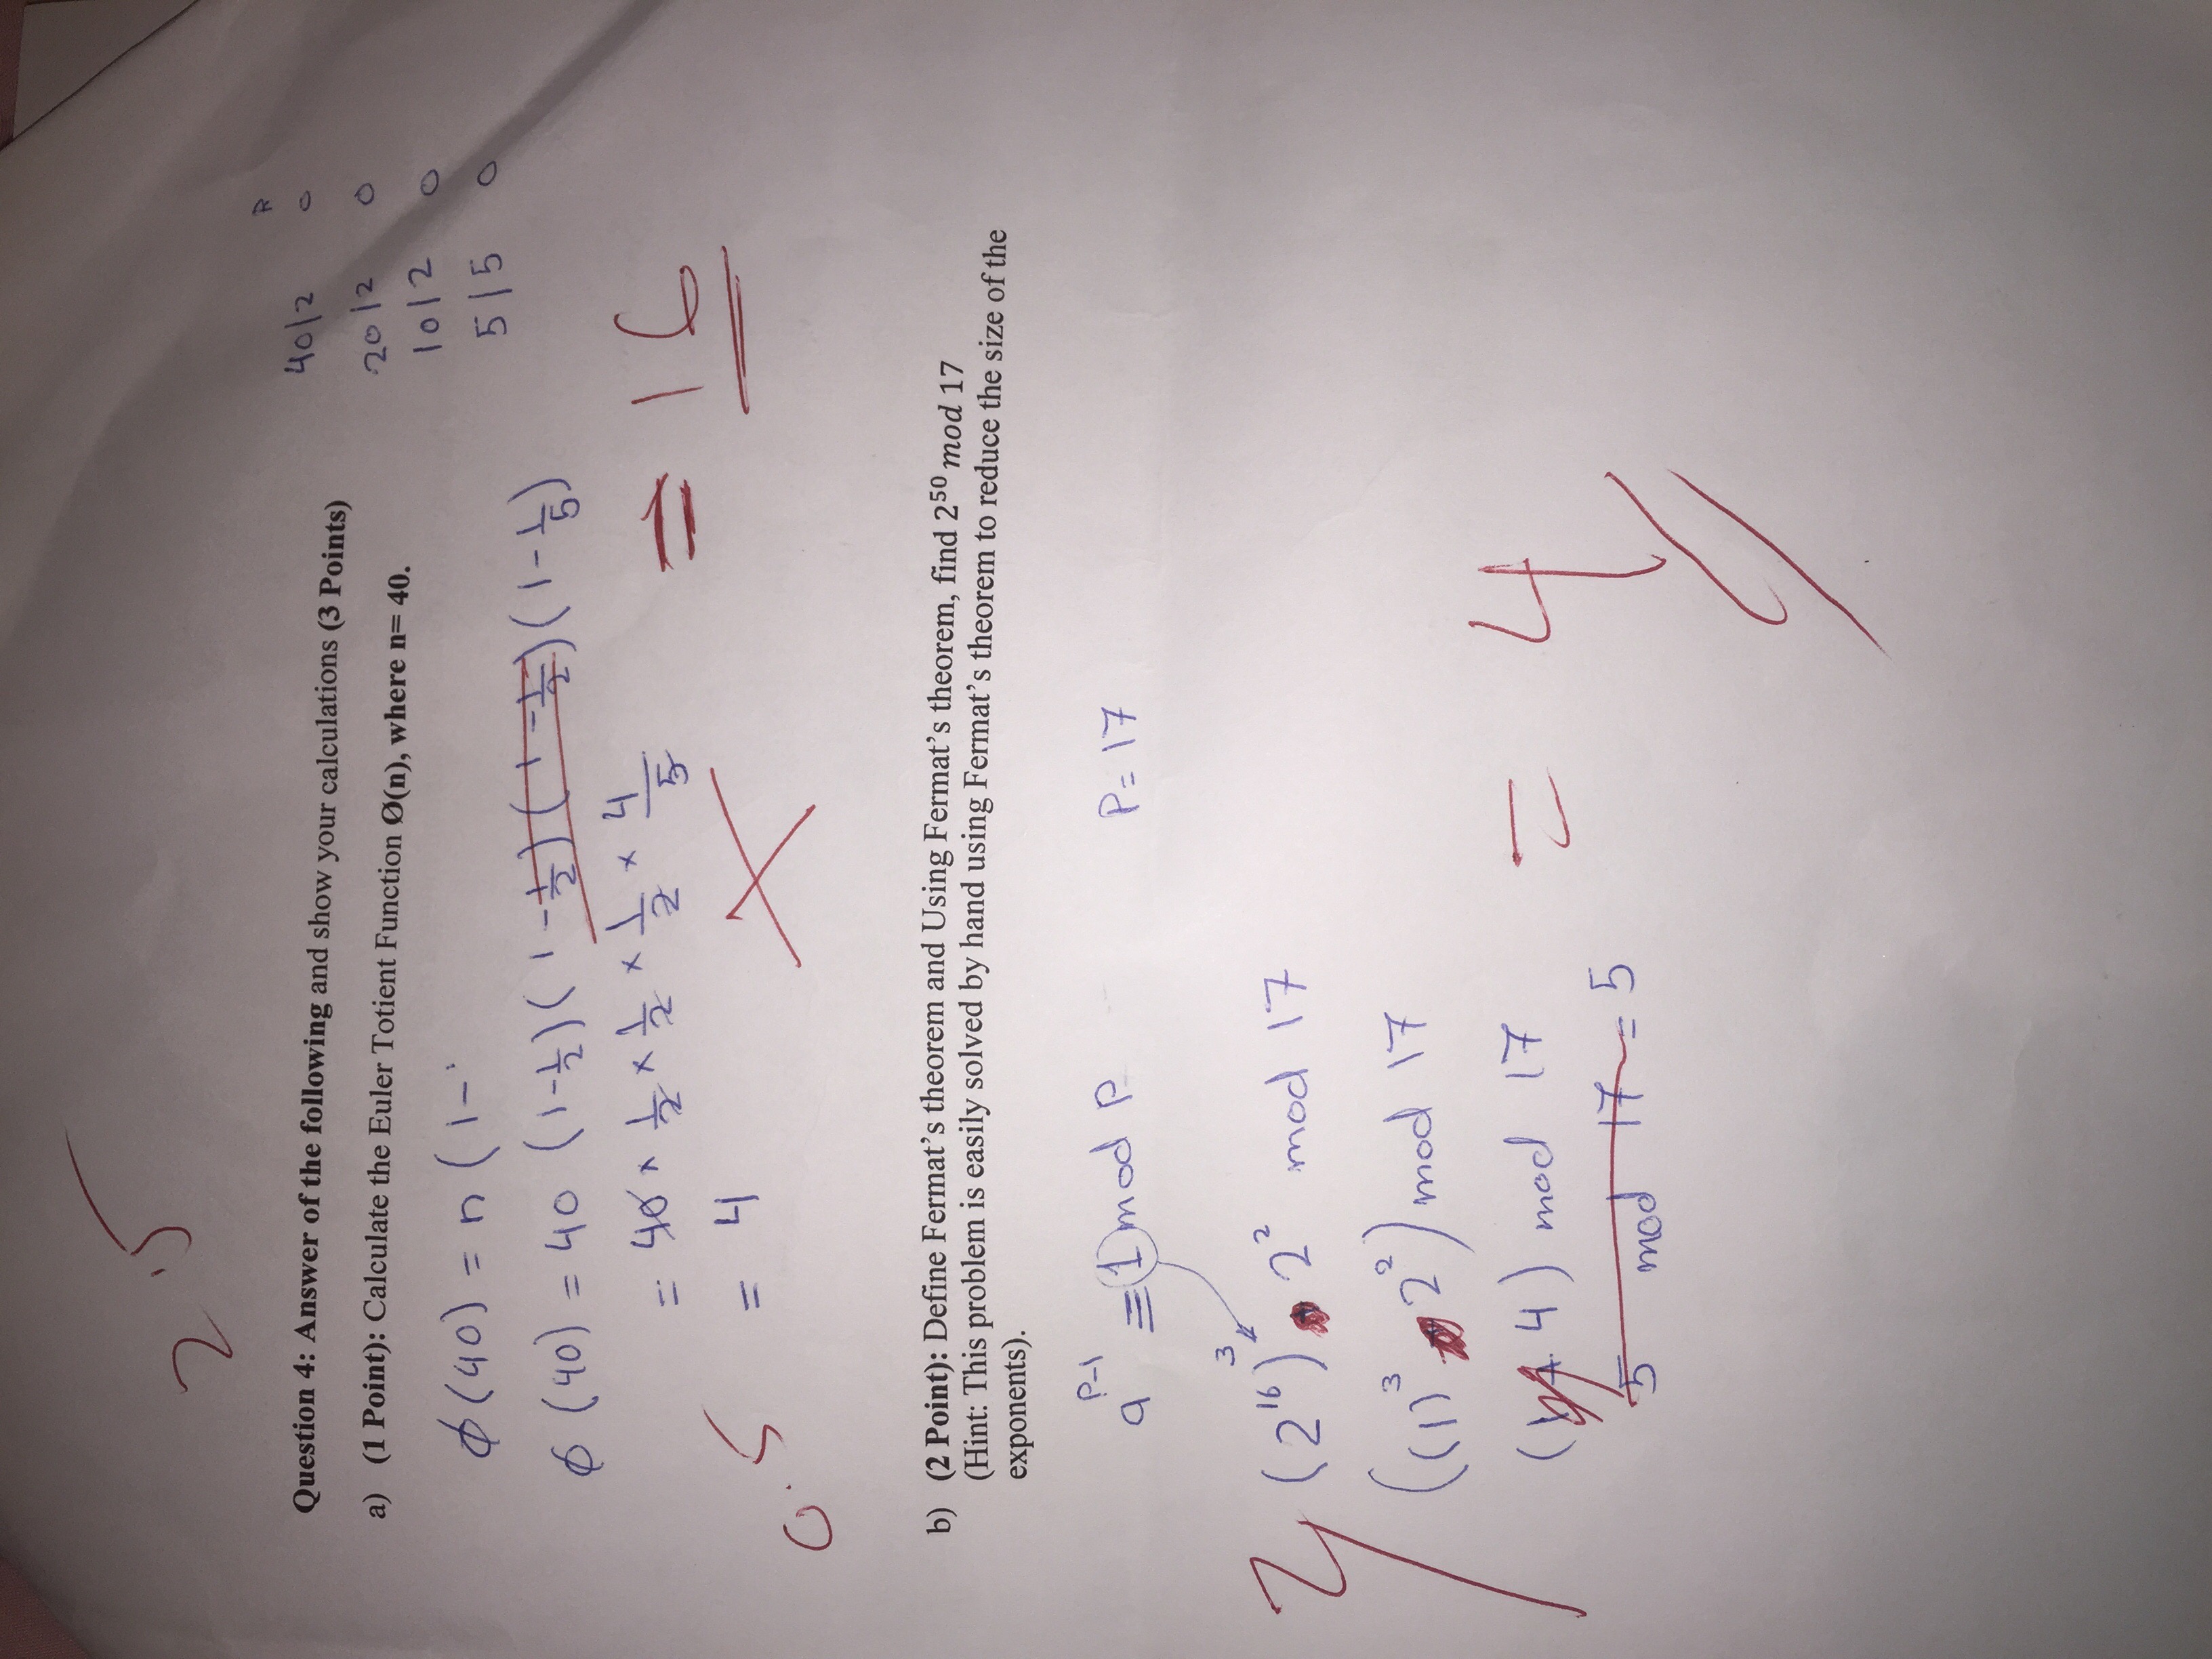 2.5
Question 4: Answer of the following and show your calculations (3 Points)
a) (1 Point): Calculate the Euler Totient Function Ø(n), where n= 40.
R
40/2 0
20/2 0
10/2 0
5/5 0
ϕ(40) = n (1-
ϕ(40) = 40 (1-1/2)(1-1/2)(1-1/2)(1-1/5)
= 40 × 1/2 × 1/2 × 1/2 × 4/5 = 16
= 4
0.5
b) (2 Point): Define Fermat's theorem and Using Fermat's theorem, find 2⁵⁰ mod 17
(Hint: This problem is easily solved by hand using Fermat's theorem to reduce the size of the
exponents).
a^(P-1) ≡ 1 mod P P= 17
2
(2¹⁶)³ · 2² mod 17
((1)³ · 2²) mod 17
( 4) mod 17 = 4
5 mod 17 = 5